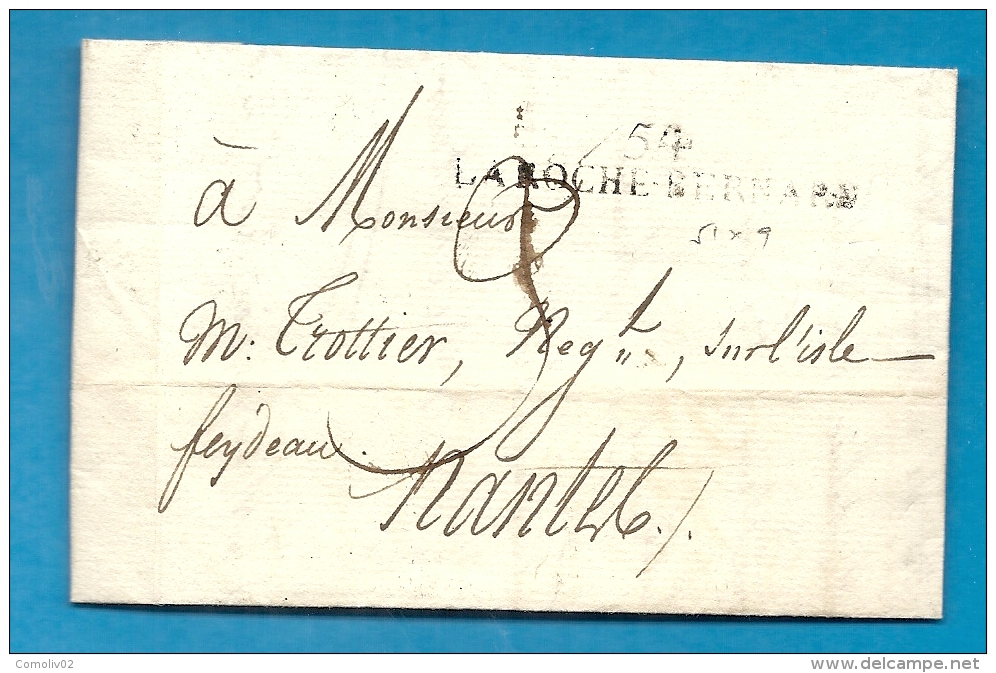 54
LA ROCHE-BERNARD
51 x 9
à Monsieur
M: Trottier, Neg.t, sur l'isle
feydeau.
Nantes./.
Comoliv02
www.delcampe.net